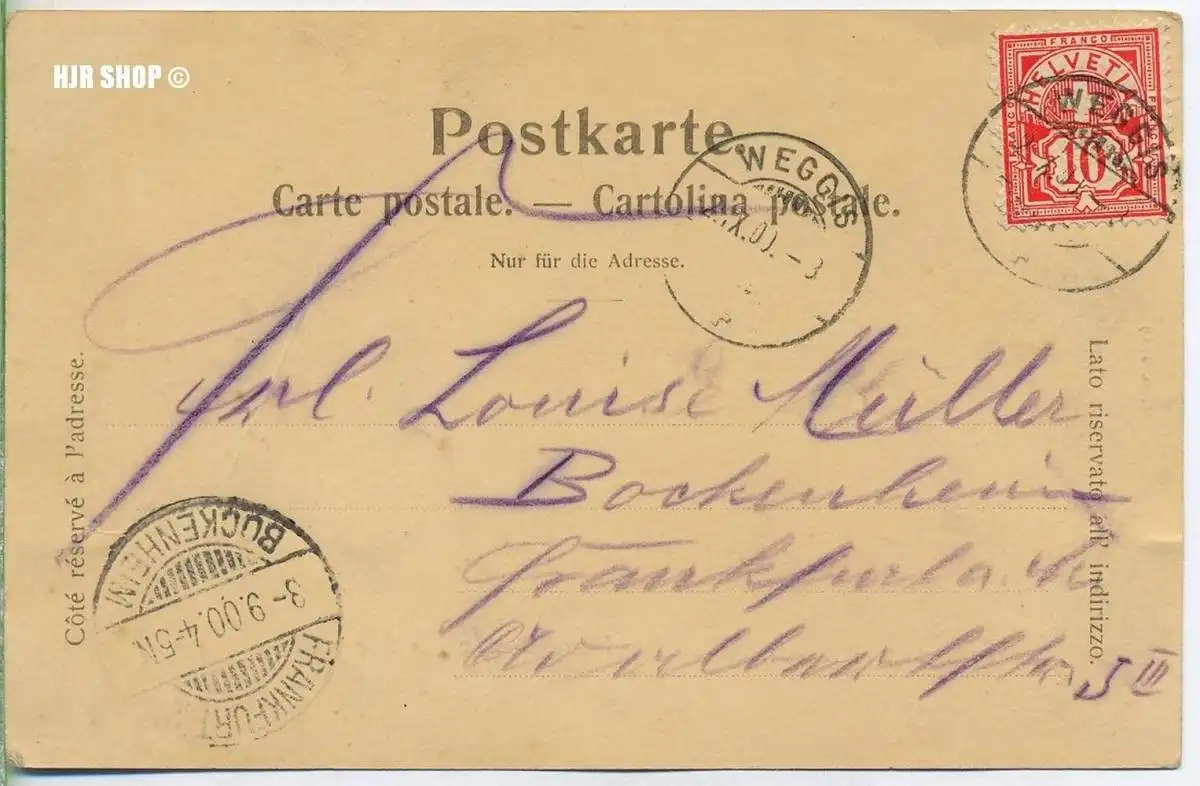 HJR SHOP ©
FRANCO
HELVETIA
FRANCO
FRANCO
10
WEGGIS
Postkarte.
Carte postale. — Cartolina postale.
WEGGIS
IX.00.-8
Nur für die Adresse.
Côté réservé à l'adresse.
Lato riservato all' indirizzo.
Frl. Louise Müller
Bockenheim
Frankfurt a. M.
5 III
BOCKENHEIM
3-9.00.4-5N.
FRANKFURT